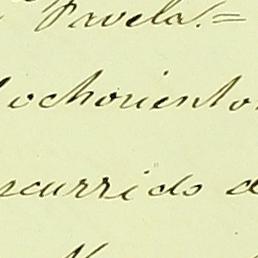 Favela.=
ochocientos
scurrido d